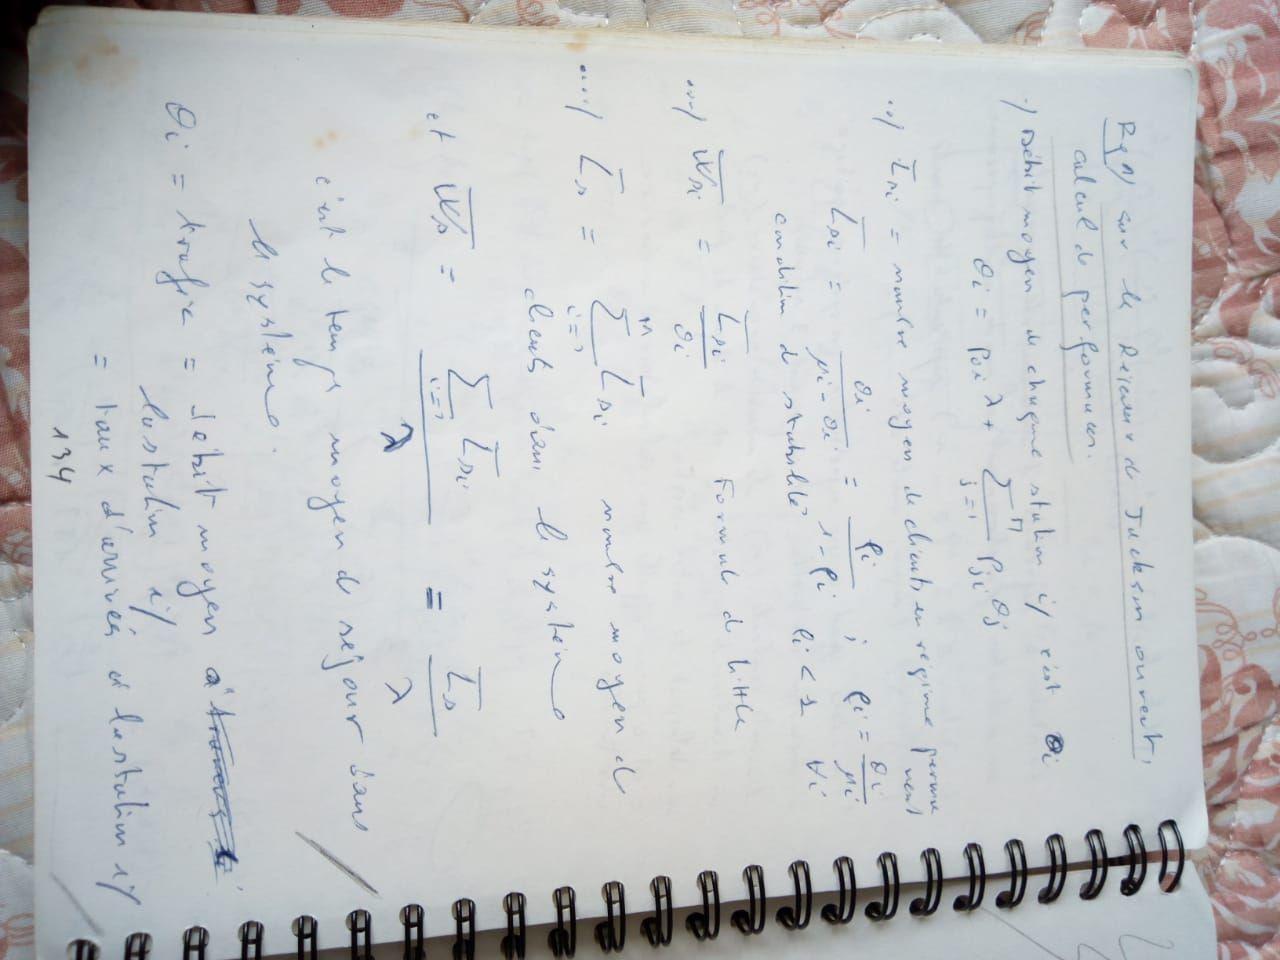 Rq 1) sur le Réseaux de Jackson ouvert,
calcul de performances.
·/ Débit moyen de chaque station i/ c'est θi
θi = p0i λ + Σ_{j=1}^{n} pji θj
··/ L̄si = nombre moyen de clients en régime permanent
L̄si = θi / (μi - θi) = ρi / (1 - ρi) ; ρi = θi / μi
condition de stabilité ρi < 1 ∀i
···/ W̄si = L̄si / θi Formule de Little
····/ L̄s = Σ_{i=1}^{n} L̄si nombre moyen de
clients dans le système
et W̄s = Σ_{i=1} L̄si / λ = L̄s / λ
c'est le temps moyen de séjour dans
le système.
θi = trafic = débit moyen à
la station i/
= taux d'arrivées à la station i/
134